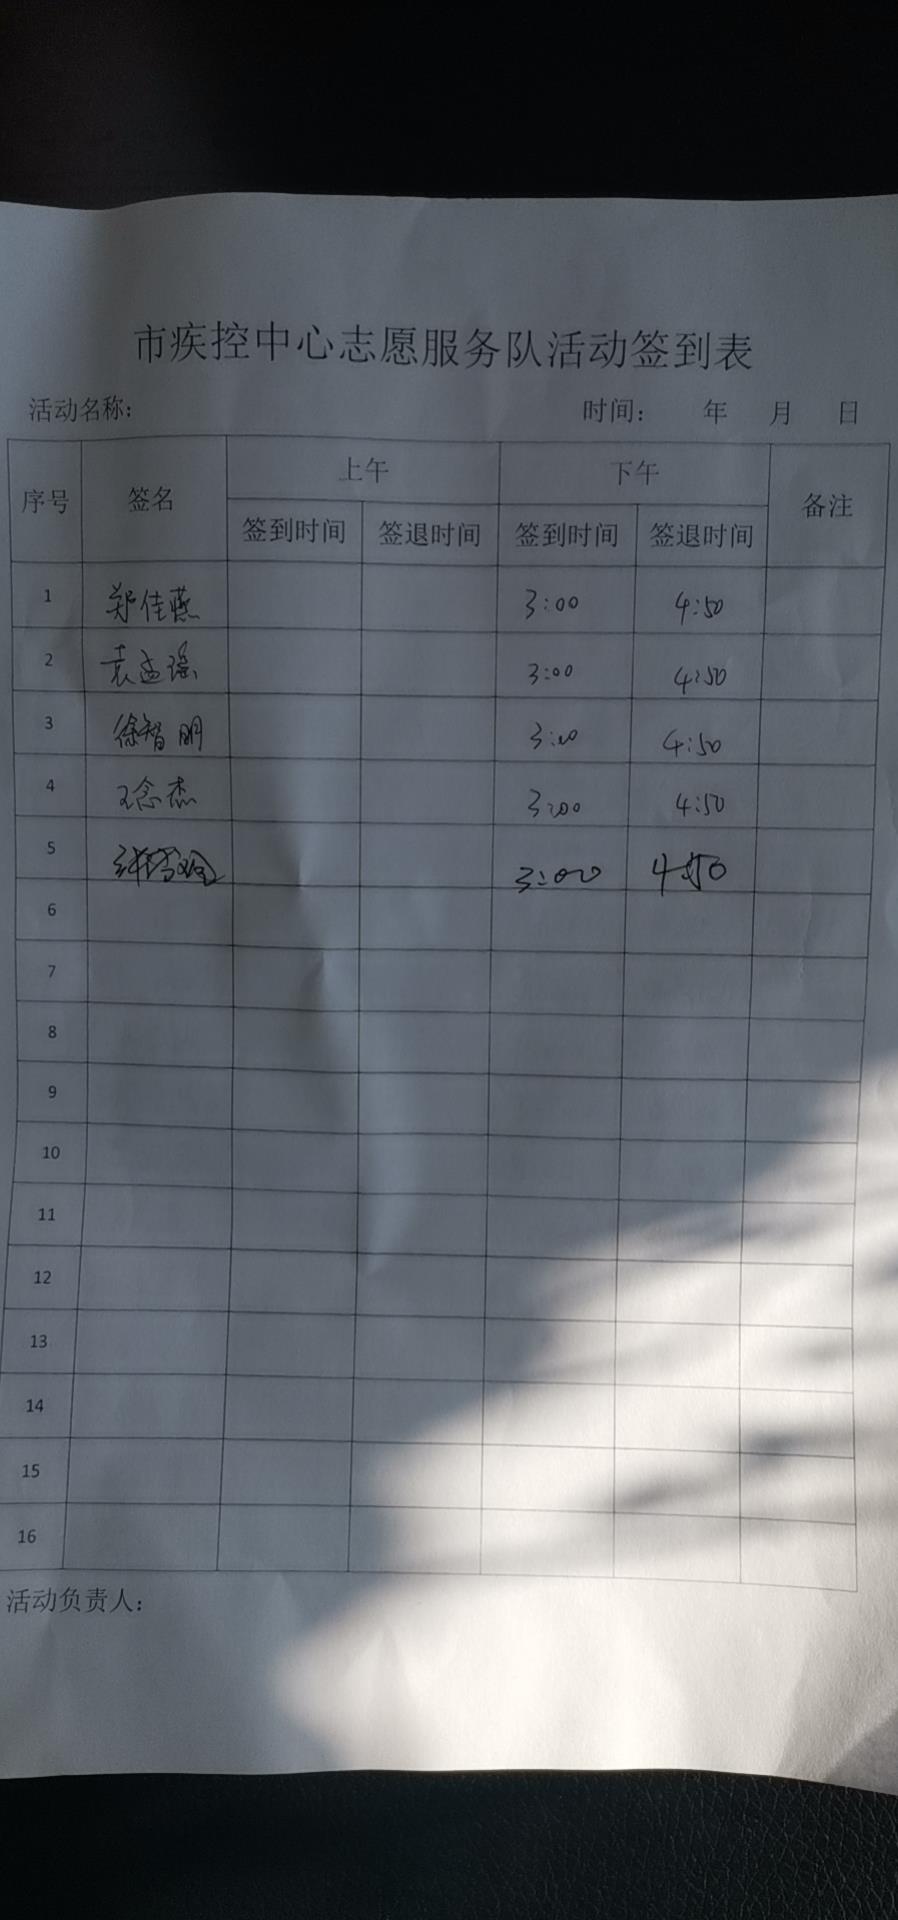 市疾控中心志愿服务队活动签到表
活动名称： 时间： 年 月 日
序号 签名 上午 下午 备注
签到时间 签退时间 签到时间 签退时间
1 郑佳燕 3:00 4:50
2 袁孟瑶 3:00 4:50
3 徐智明 3:00 4:50
4 王念杰 3:00 4:50
5 3:00 4:50
6
7
8
9
10
11
12
13
14
15
16
活动负责人：